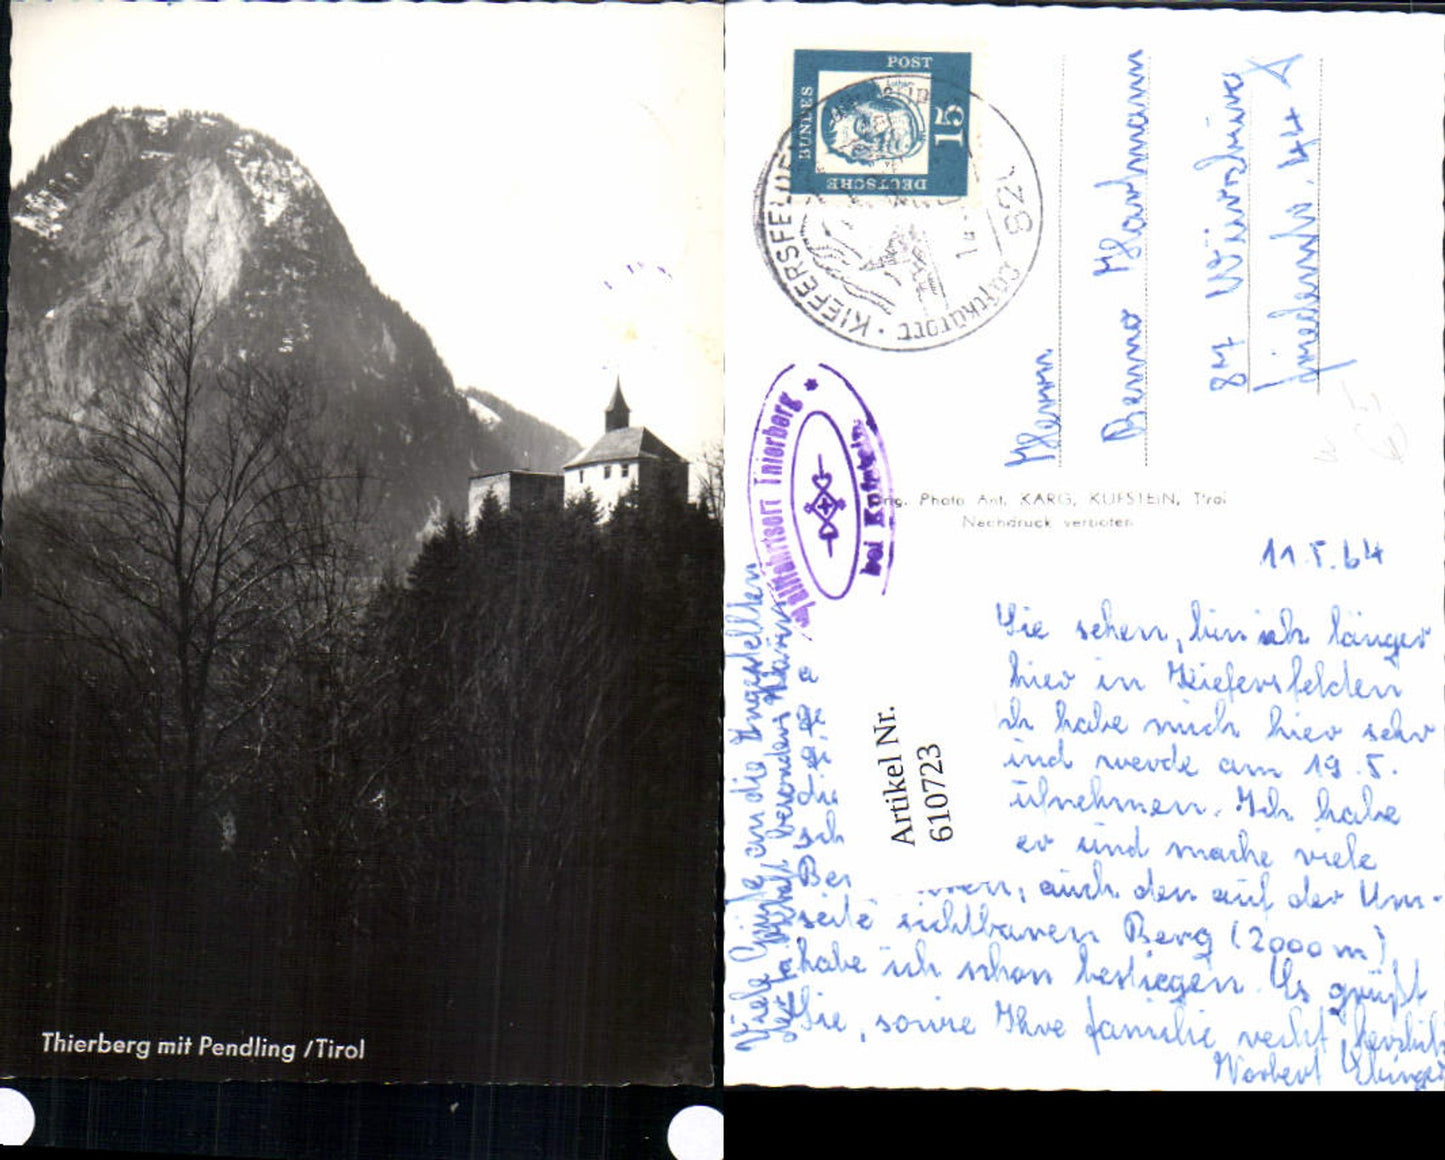 Thierberg mit Pendling / Tirol
POST
BUNDES
15
DEUTSCHE
KIEFERSFELDEN
Luftkurort
821
Wallfahrtsort Thierberg
bei Kufstein
Herrn
Benno Hartmann
87 Würzburg
Friedenstr. 44
Orig. Photo Ant. KARG, KUFSTEIN, Tirol
Nachdruck verboten
11.5.64
Sie sehen, bin ich länger
hier in Kiefersfelden
ich habe mich hier sehr
und werde am 19.5.
Ich habe
und mache viele
Ber
auch den auf der Um-
seite sichtbaren Berg (2000 m)
habe ich schon bestiegen. Es grüßt
Sie, sowie Ihre Familie recht herzlich
Norbert
Viele Grüße an die Angestellten
Artikel Nr.
610723